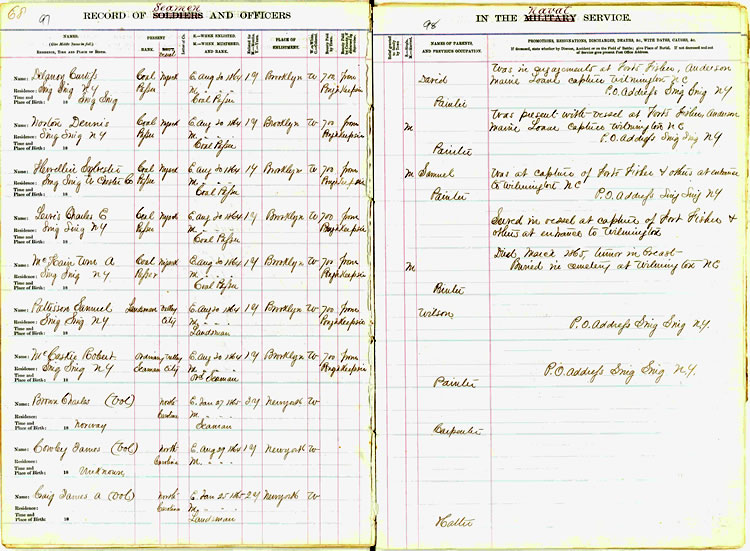 68
97
RECORD OF SOLDIERS AND OFFICERS
Seamen
NAMES.
(Give Middle Names in full.)
RESIDENCE, TIME AND PLACE OF BIRTH.
PRESENT RANK.
E.—WHEN ENLISTED.
M.—WHEN MUSTERED, AND RANK.
PLACE OF ENLISTMENT.
Name: Curtis
Coal
E. Aug 30 1864 1 y Brooklyn W 700 from
Residence: Sing Sing N Y
Passer
M. " " "
Poughkeepsie
Time and
Place of Birth: 18 Sing Sing
Coal Passer
Name: Norton Dennis
Coal
E. Aug 30 1864 1 y Brooklyn W 700 from
Residence: Sing Sing N Y
Passer
M. " " "
Poughkeepsie
Time and
Place of Birth: 18
Coal Passer
Name: Sylvester
Coal
E. Aug 30 1864 1 y Brooklyn W 700 from
Residence: Sing Sing W Chester Co
Passer
M. " " "
Poughkeepsie
Time and
Place of Birth: 18
Coal Passer
Name: Lewis Charles C
Coal
E. Aug 30 1864 1 y Brooklyn W 700 from
Residence: Sing Sing N Y
Passer
M. " " "
Poughkeepsie
Time and
Place of Birth: 18
Coal Passer
Name: Wm A
Coal
E. Aug 30 1864 1 y Brooklyn W 700 from
Residence: Sing Sing N Y
Passer
M. " " "
Poughkeepsie
Time and
Place of Birth: 18
Coal Passer
Name: Patterson Samuel
Landsman Valley
E. Aug 30 1864 1 y Brooklyn W 700 from
Residence: Sing Sing N Y
City
M. " " "
Poughkeepsie
Time and
Place of Birth: 18
Landsman
Name: Robert
Ordinary Valley
E. Aug 30 1864 1 y Brooklyn W 700 from
Residence: Sing Sing N Y
Seaman City
M. " " "
Poughkeepsie
Time and
Place of Birth: 18
Ord Seaman
Name: Brown Charles (Vol)
North
E. Jan 27 1865 2 y New York W
Residence:
Carolina
M. " " "
Time and
Place of Birth: 18 Norway
Seaman
Name: Cowley James (Vol)
North
E. Aug 29 1864 1 y New York W
Residence:
Carolina
M. " " "
Time and
Place of Birth: 18 Unknown
Name: Craig James A (Vol)
North
E. Jan 25 1865 2 y New York W
Residence:
Carolina
M. " " "
Time and
Place of Birth: 18
Landsman
98
Naval
IN THE MILITARY SERVICE.
NAMES OF PARENTS,
AND PREVIOUS OCCUPATION.
PROMOTIONS, RESIGNATIONS, DISCHARGES, DEATHS, &c., WITH DATES, CAUSES, &c.
If deceased, state whether by Disease, Accident or on the Field of Battle; give Place of Burial. If not deceased and out
of Service give present Post Office Address.
Was in engagements at Forts Fisher, Anderson
David
capture Wilmington NC
Painter
P.O. Address Sing Sing N Y
Was present with vessel at Forts Fisher, Anderson
M
capture Wilmington NC
Painter
P.O. Address Sing Sing N Y
M Samuel
Was at capture of Forts Fisher & others at entrance
to Wilmington NC
Painter
P.O. Address Sing Sing N Y
Served in vessel at capture of Fort Fisher &
others at entrance to Wilmington
Died March 1865, tumor in breast
M
Buried in cemetery at Wilmington NC
Painter
Wilson
P.O. Address Sing Sing N.Y.
P.O. Address Sing Sing N.Y.
Painter
Carpenter
Hatter